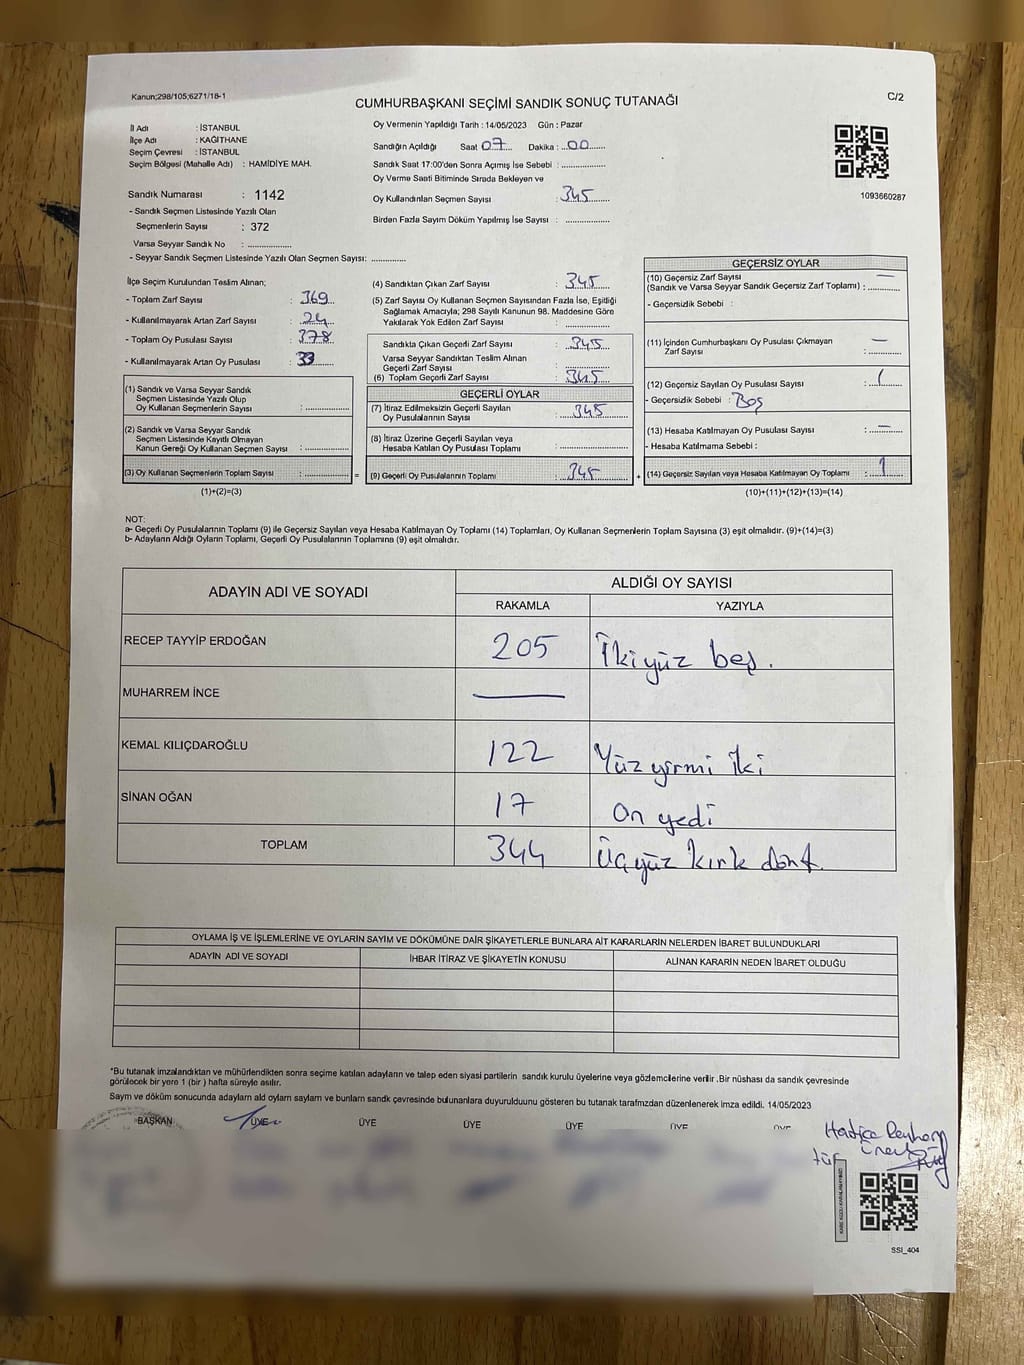 Kanun;298/105;6271/18-1
CUMHURBAŞKANI SEÇİMİ SANDIK SONUÇ TUTANAĞI
C/2
İl Adı : İSTANBUL
İlçe Adı : KAĞITHANE
Seçim Çevresi : İSTANBUL
Seçim Bölgesi (Mahalle Adı) : HAMİDİYE MAH.
Sandık Numarası : 1142
- Sandık Seçmen Listesinde Yazılı Olan
Seçmenlerin Sayısı : 372
Varsa Seyyar Sandık No : ................
- Seyyar Sandık Seçmen Listesinde Yazılı Olan Seçmen Sayısı: .............
Oy Vermenin Yapıldığı Tarih : 14/05/2023 Gün : Pazar
Sandığın Açıldığı Saat 07 Dakika : 00
Sandık Saat 17:00'den Sonra Açılmış İse Sebebi : ................
Oy Verme Saati Bitiminde Sırada Bekleyen ve
Oy Kullandırılan Seçmen Sayısı : 345
Birden Fazla Sayım Döküm Yapılmış İse Sayısı : ................
1093660287
İlçe Seçim Kurulundan Teslim Alınan;
- Toplam Zarf Sayısı : 369
- Kullanılmayarak Artan Zarf Sayısı : 24
- Toplam Oy Pusulası Sayısı : 378
- Kullanılmayarak Artan Oy Pusulası : 33
(1) Sandık ve Varsa Seyyar Sandık
Seçmen Listesinde Yazılı Olup
Oy Kullanan Seçmenlerin Sayısı : ................
(2) Sandık ve Varsa Seyyar Sandık
Seçmen Listesinde Kayıtlı Olmayan
Kanun Gereği Oy Kullanan Seçmen Sayısı : ................
(3) Oy Kullanan Seçmenlerin Toplam Sayısı : ................ =
(1)+(2)=(3)
(4) Sandıktan Çıkan Zarf Sayısı : 345
(5) Zarf Sayısı Oy Kullanan Seçmen Sayısından Fazla İse, Eşitliği
Sağlamak Amacıyla; 298 Sayılı Kanunun 98. Maddesine Göre
Yakılarak Yok Edilen Zarf Sayısı : ................
Sandıkta Çıkan Geçerli Zarf Sayısı : 345
Varsa Seyyar Sandıktan Teslim Alınan
Geçerli Zarf Sayısı : ................
(6) Toplam Geçerli Zarf Sayısı : 345
GEÇERLİ OYLAR
(7) İtiraz Edilmeksizin Geçerli Sayılan
Oy Pusulalarının Sayısı : 345
(8) İtiraz Üzerine Geçerli Sayılan veya
Hesaba Katılan Oy Pusulası Toplamı : ................
(9) Geçerli Oy Pusulalarının Toplamı : 345 +
GEÇERSİZ OYLAR
(10) Geçersiz Zarf Sayısı —
(Sandık ve Varsa Seyyar Sandık Geçersiz Zarf Toplamı) : .........
- Geçersizlik Sebebi :
(11) İçinden Cumhurbaşkanı Oy Pusulası Çıkmayan —
Zarf Sayısı : .........
(12) Geçersiz Sayılan Oy Pusulası Sayısı : 1
- Geçersizlik Sebebi : Boş
(13) Hesaba Katılmayan Oy Pusulası Sayısı : —
- Hesaba Katılmama Sebebi :
(14) Geçersiz Sayılan veya Hesaba Katılmayan Oy Toplamı : 1
(10)+(11)+(12)+(13)=(14)
NOT:
a- Geçerli Oy Pusulalarının Toplamı (9) ile Geçersiz Sayılan veya Hesaba Katılmayan Oy Toplamı (14) Toplamları, Oy Kullanan Seçmenlerin Toplam Sayısına (3) eşit olmalıdır. (9)+(14)=(3)
b- Adayların Aldığı Oyların Toplamı, Geçerli Oy Pusulalarının Toplamına (9) eşit olmalıdır.
ADAYIN ADI VE SOYADI
ALDIĞI OY SAYISI
RAKAMLA YAZIYLA
RECEP TAYYİP ERDOĞAN 205 İkiyüz beş.
MUHARREM İNCE —
KEMAL KILIÇDAROĞLU 122 Yüz yirmi iki
SİNAN OĞAN 17 On yedi
TOPLAM 344 Üçyüz kırk dört.
OYLAMA İŞ VE İŞLEMLERİNE VE OYLARIN SAYIM VE DÖKÜMÜNE DAİR ŞİKAYETLERLE BUNLARA AİT KARARLARIN NELERDEN İBARET BULUNDUKLARI
ADAYIN ADI VE SOYADI İHBAR İTİRAZ VE ŞİKAYETİN KONUSU ALINAN KARARIN NEDEN İBARET OLDUĞU
*Bu tutanak imzalandıktan ve mühürlendikten sonra seçime katılan adayların ve talep eden siyasi partilerin sandık kurulu üyelerine veya gözlemcilerine verilir .Bir nüshası da sandık çevresinde
görülecek bir yere 1 (bir ) hafta süreyle asılır.
Sayım ve döküm sonucunda adayların ald oyların sayların ve bunların sandk çevresinde bulunanlara duyurulduunu gösteren bu tutanak tarafmzdan düzenlenerek imza edildi. 14/05/2023
BAŞKAN ÜYE ÜYE ÜYE ÜYE ÜYE ÜYE
Hatice
SSI_404